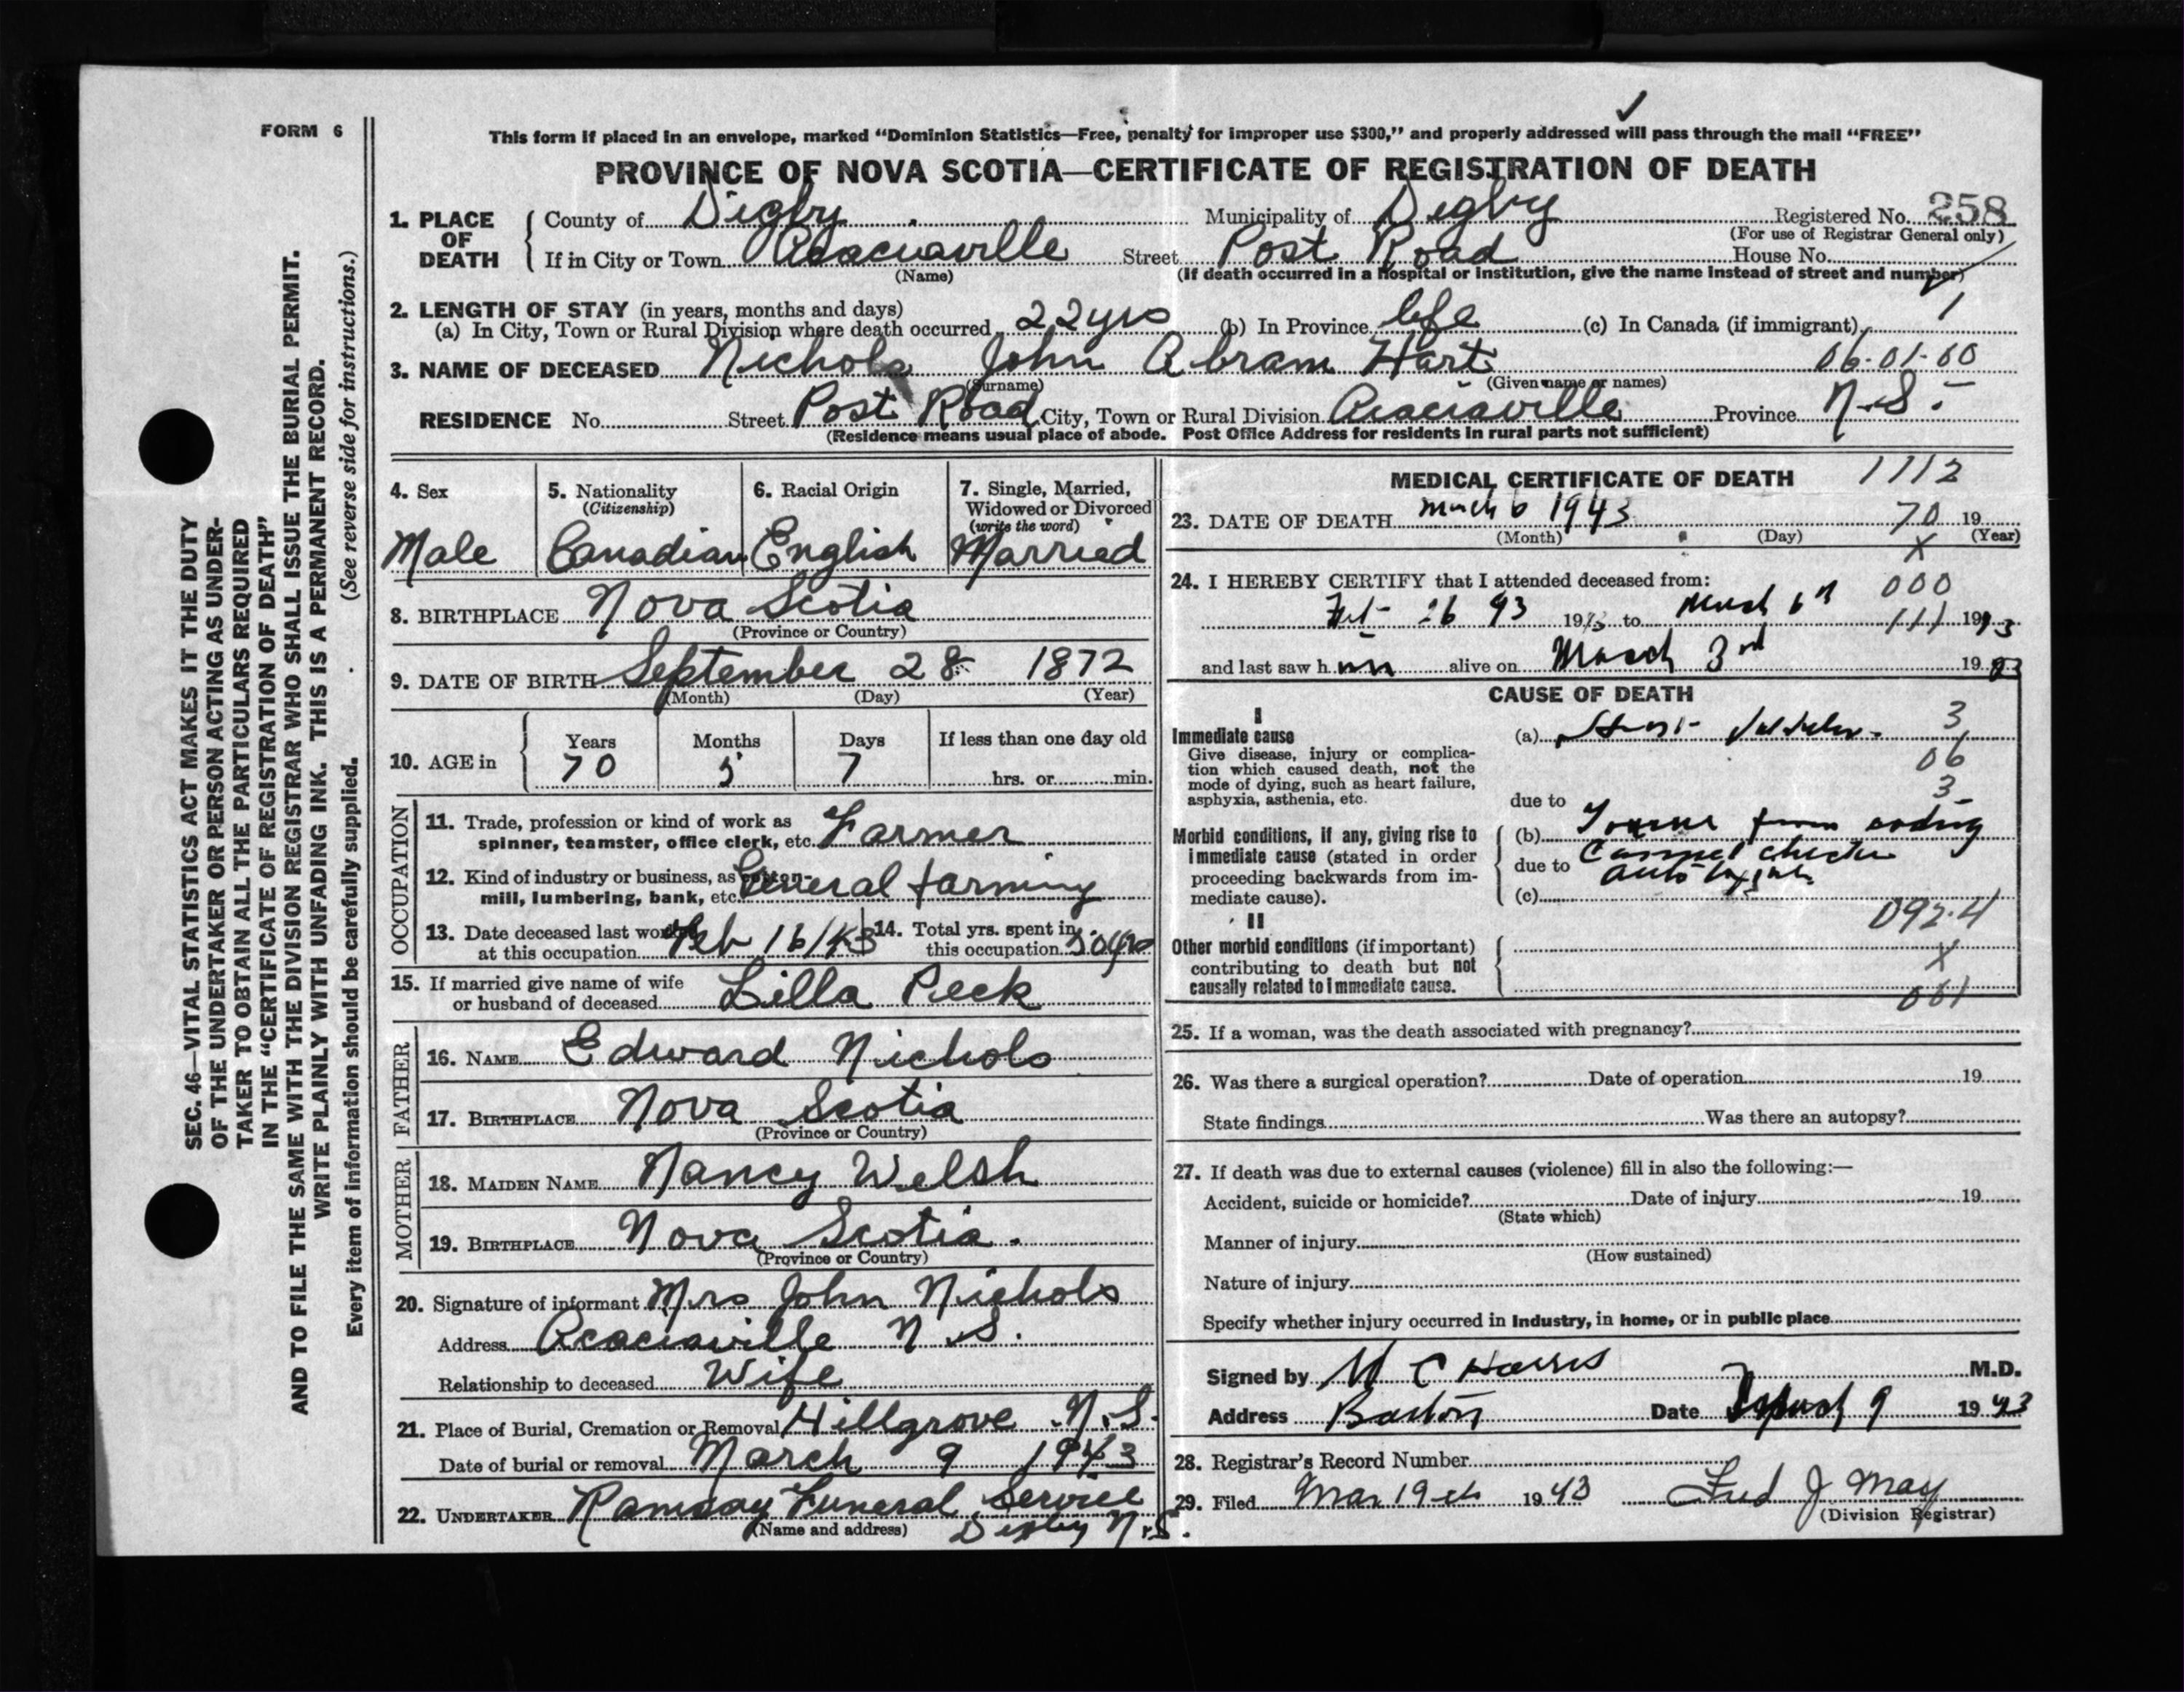 FORM 6
This form if placed in an envelope, marked “Dominion Statistics—Free, penalty for improper use $300,” and properly addressed will pass through the mail “FREE”
PROVINCE OF NOVA SCOTIA—CERTIFICATE OF REGISTRATION OF DEATH
1. PLACE OF DEATH
County of Digby Municipality of Digby Registered No. 258
(For use of Registrar General only)
If in City or Town Acaciaville Street Post Road House No.
(Name) (If death occurred in a hospital or institution, give the name instead of street and number)
2. LENGTH OF STAY (in years, months and days) 1
(a) In City, Town or Rural Division where death occurred 22 yrs (b) In Province life (c) In Canada (if immigrant)
3. NAME OF DECEASED Nichols John Abram Hart 06-01-60
(Surname) (Given name or names)
RESIDENCE No. Street Post Road City, Town or Rural Division Acaciaville Province N.S.
(Residence means usual place of abode. Post Office Address for residents in rural parts not sufficient)
4. Sex
Male
5. Nationality
(Citizenship)
Canadian
6. Racial Origin
English
7. Single, Married,
Widowed or Divorced
(write the word)
Married
8. BIRTHPLACE Nova Scotia
(Province or Country)
9. DATE OF BIRTH September 28 1872
(Month) (Day) (Year)
10. AGE in
Years Months Days If less than one day old
70 5 7 hrs. or min.
OCCUPATION
11. Trade, profession or kind of work as
spinner, teamster, office clerk, etc. Farmer
12. Kind of industry or business, as cotton-
mill, lumbering, bank, etc. General farming
13. Date deceased last worked
at this occupation Feb 16/43
14. Total yrs. spent in
this occupation 50 yrs
15. If married give name of wife
or husband of deceased Lilla Peck
FATHER
16. NAME Edward Nichols
17. BIRTHPLACE Nova Scotia
(Province or Country)
MOTHER
18. MAIDEN NAME Nancy Welsh
19. BIRTHPLACE Nova Scotia.
(Province or Country)
20. Signature of informant Mrs John Nichols
Address Acaciaville N.S.
Relationship to deceased Wife
21. Place of Burial, Cremation or Removal Hillgrove N.S.
Date of burial or removal March 9 1943
22. UNDERTAKER Ramsay Funeral Service
(Name and address) Digby N.S.
MEDICAL CERTIFICATE OF DEATH 1112
23. DATE OF DEATH March 6 1943 70 19
(Month) (Day) X (Year)
24. I HEREBY CERTIFY that I attended deceased from: 000
Feb 26 43 19 to March 6th 111 1943
and last saw h alive on March 3rd 19 43
CAUSE OF DEATH
I
Immediate cause
Give disease, injury or complica-
tion which caused death, not the
mode of dying, such as heart failure,
asphyxia, asthenia, etc.
(a) 3
06
3
due to
Morbid conditions, if any, giving rise to
immediate cause (stated in order
proceeding backwards from im-
mediate cause).
(b) from
due to
(c)
092.4
II
Other morbid conditions (if important)
contributing to death but not
causally related to immediate cause.
X
061
25. If a woman, was the death associated with pregnancy?
26. Was there a surgical operation? Date of operation 19
State findings Was there an autopsy?
27. If death was due to external causes (violence) fill in also the following:—
Accident, suicide or homicide? Date of injury 19
(State which)
Manner of injury
(How sustained)
Nature of injury
Specify whether injury occurred in industry, in home, or in public place
Signed by C Harris M.D.
Address Barton Date March 9 19 43
28. Registrar's Record Number
29. Filed Mar 19th 19 43 Fred J May
(Division Registrar)
SEC. 46—VITAL STATISTICS ACT MAKES IT THE DUTY
OF THE UNDERTAKER OR PERSON ACTING AS UNDER-
TAKER TO OBTAIN ALL THE PARTICULARS REQUIRED
IN THE “CERTIFICATE OF REGISTRATION OF DEATH”
AND TO FILE THE SAME WITH THE DIVISION REGISTRAR WHO SHALL ISSUE THE BURIAL PERMIT.
WRITE PLAINLY WITH UNFADING INK. THIS IS A PERMANENT RECORD.
Every item of information should be carefully supplied. (See reverse side for instructions.)